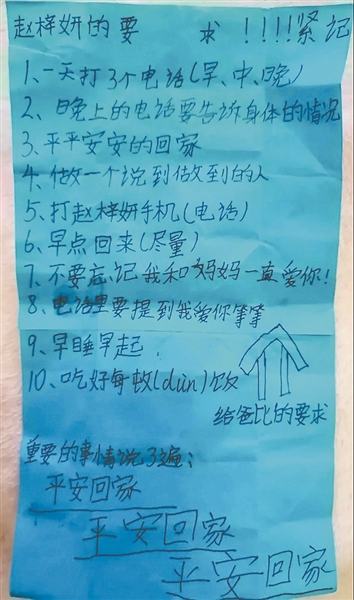 赵梓妍的要 求!!!!紧记
1、一天打3个电话(早、中、晚)
2、晚上的电话要告诉身体的情况
3、平平安安的回家
4、做一个说到做到的人
5、打赵梓妍手机(电话)
6、早点回来(尽量)
7、不要忘记我和妈妈一直爱你!
8、电话里要提到我爱你等等
9、早睡早起
10、吃好每顿(dùn)饭
给爸比的要求
重要的事情说3遍:
平安回家
平安回家
平安回家